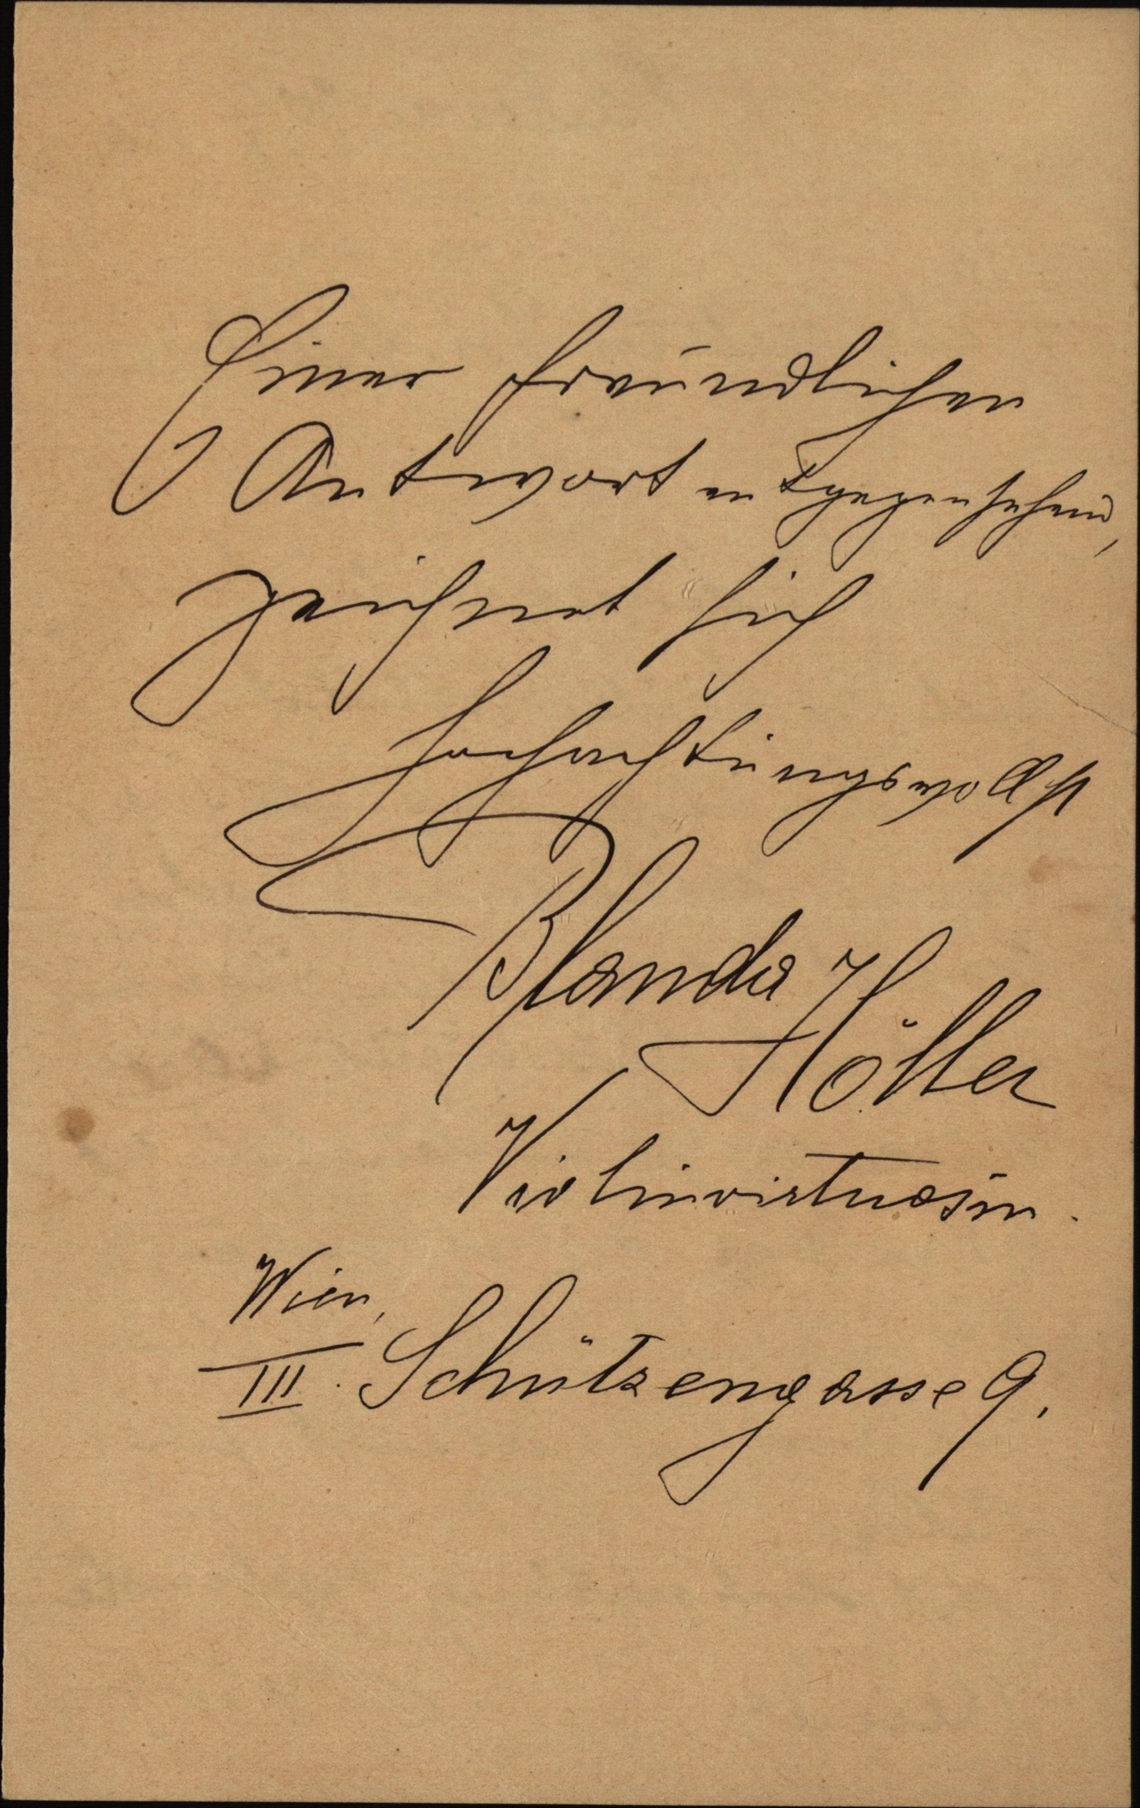 Einer freundlichen
Antwort entgegensehend,
zeichnet sich
hochachtungsvollst
Blanda Höller
Violinvirtuosin.
Wien,
III. Schützengasse 9.